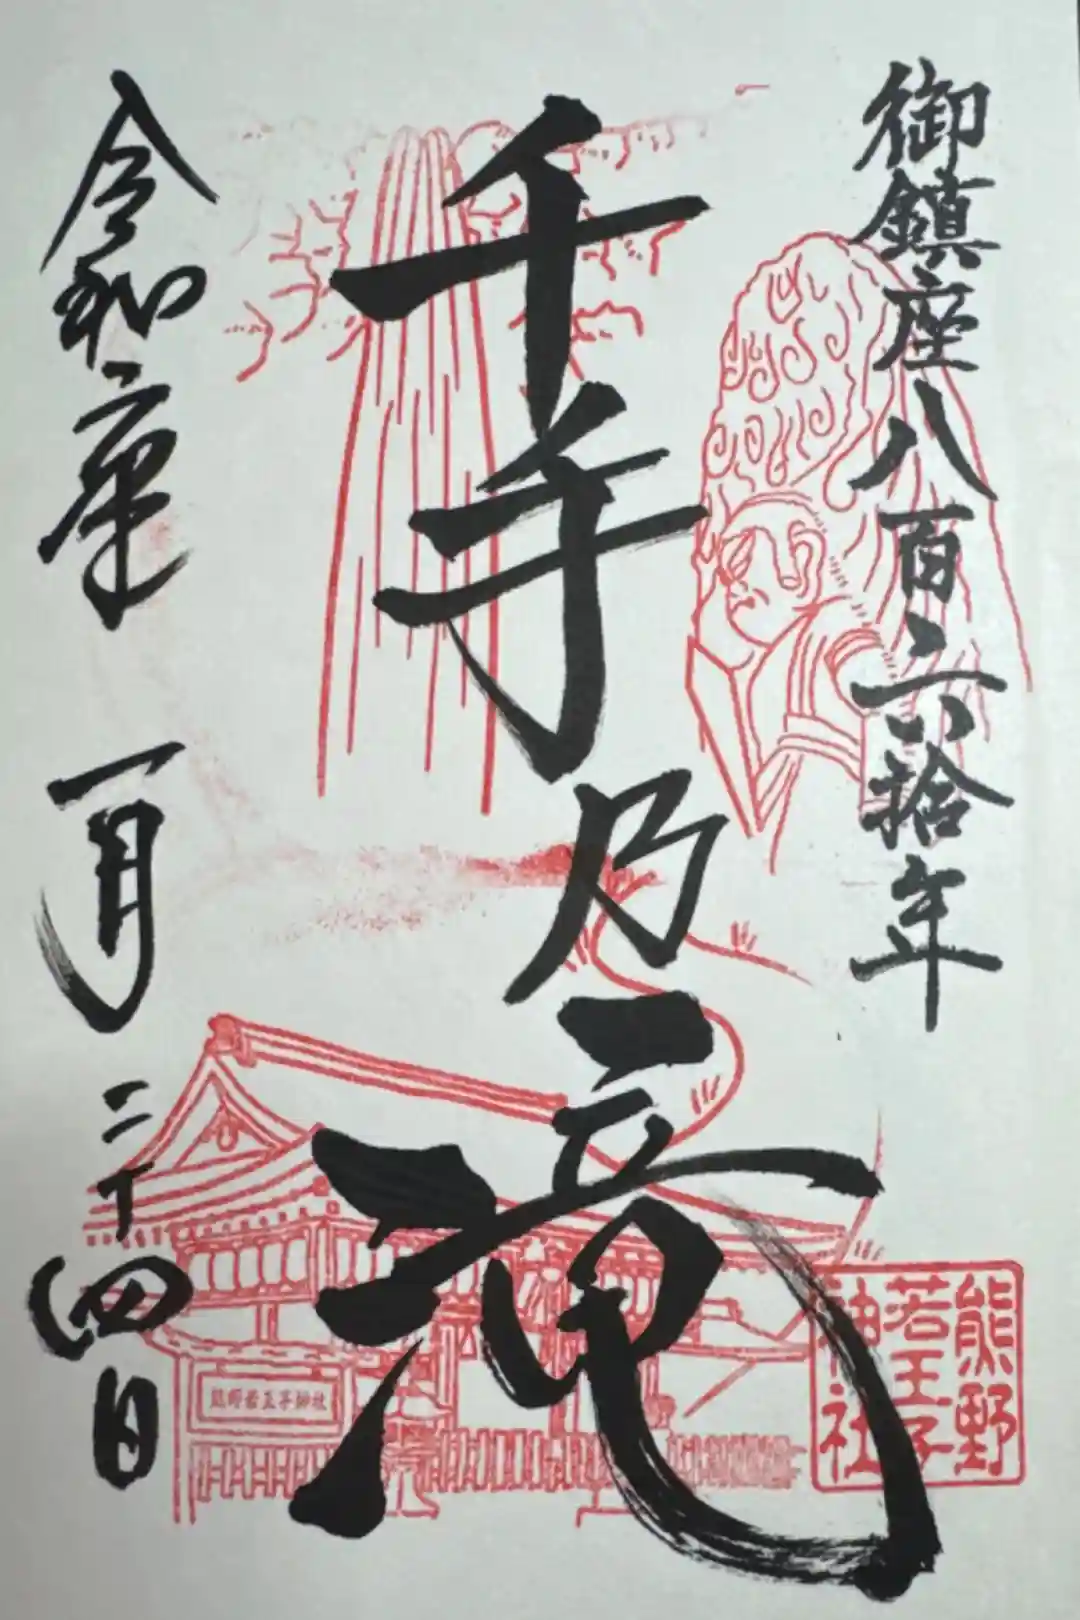 御鎮座八百六拾年
千手乃滝
令和二年 一月二十四日
熊野
若王子
神社
熊野若王子神社